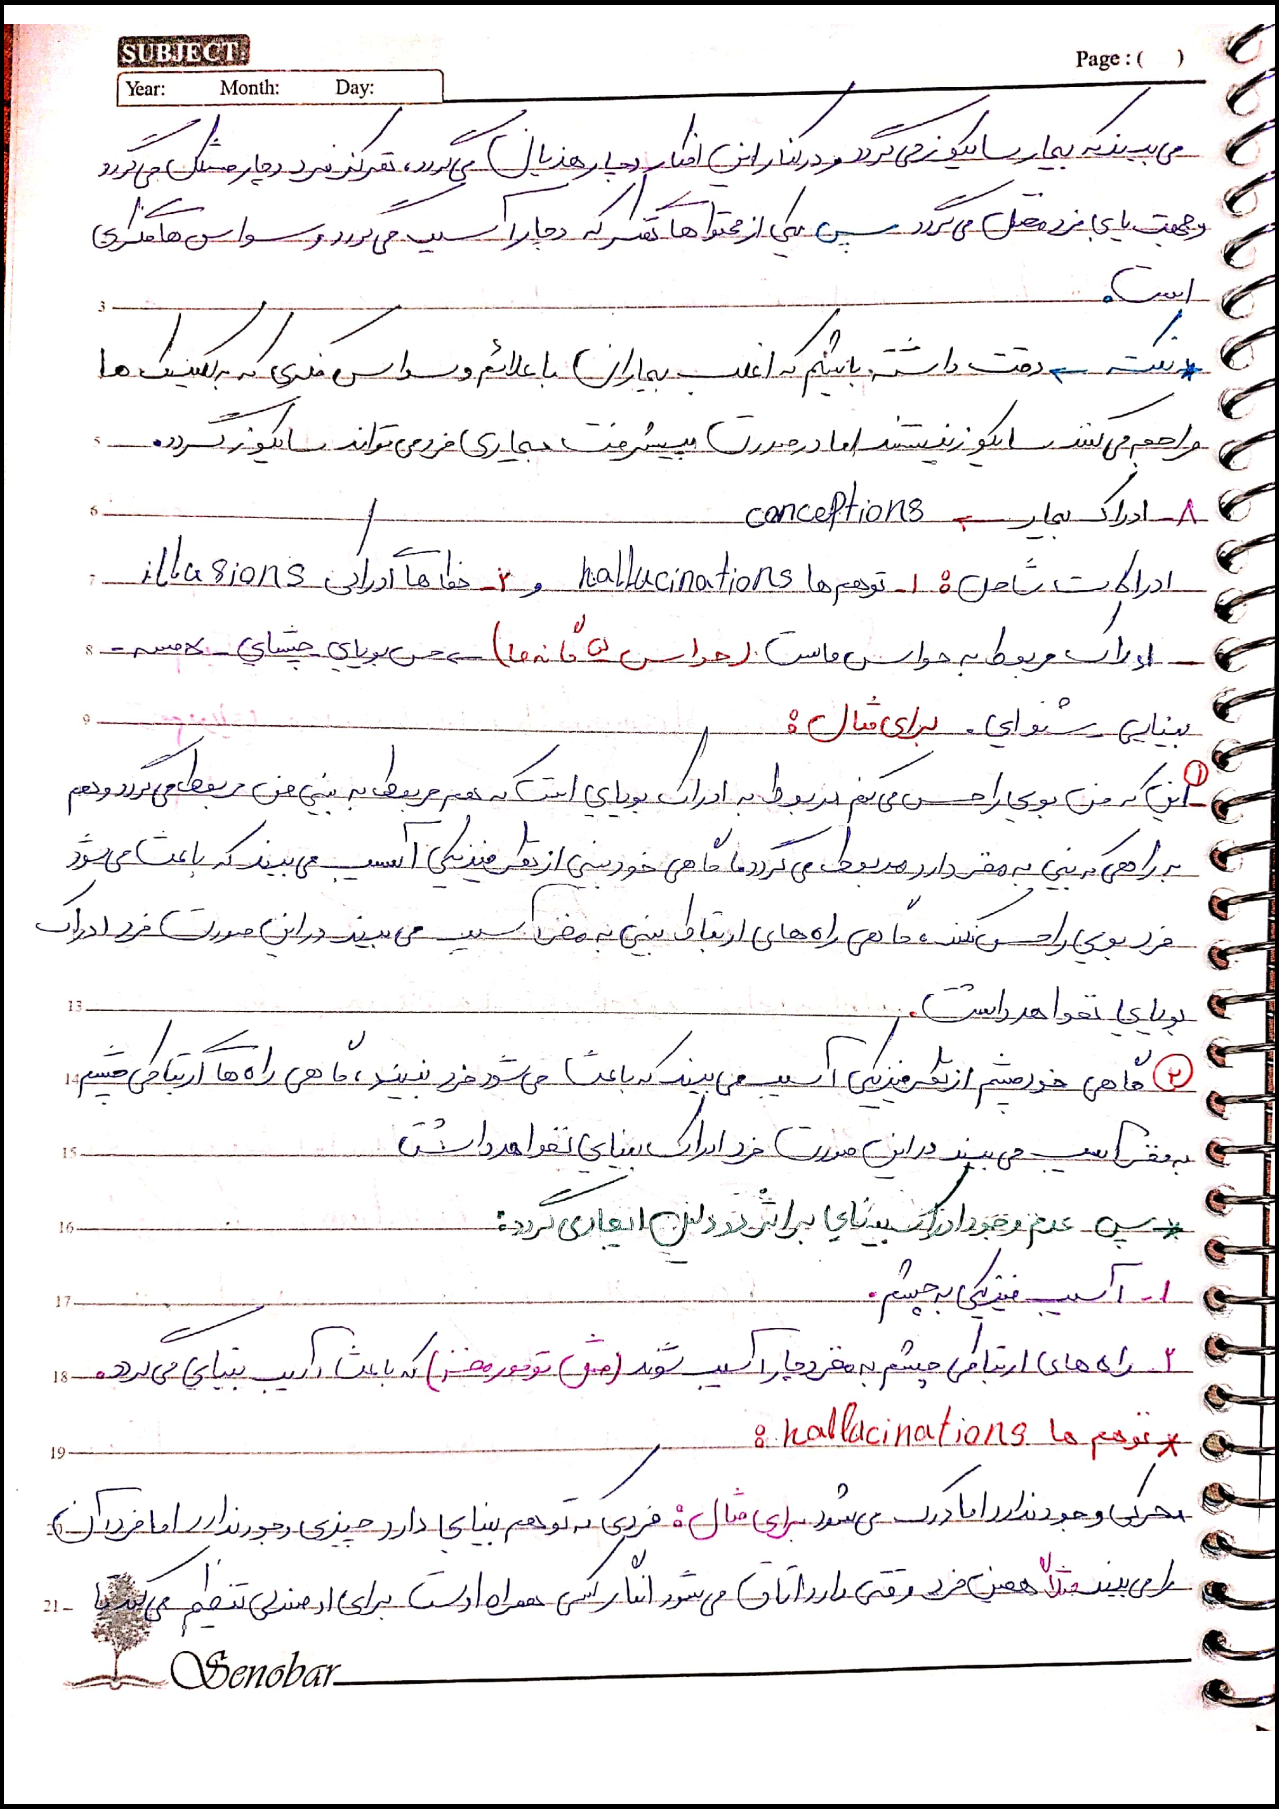 SUBJECT:
Page : ( )
Year: Month: Day:
می بیند که بیمار سایکوز می گردد و در کنار این افکار دچار هذیان می گردد، تفکر فرد دچار مشکل می گردد
و جهت یابی فرد مختل می گردد سپس یکی از محتواهای تفکر که دچار آسیب می گردد وسواس های فکری
3 است.
* نکته ← دقت داشته باشیم که اغلب بیماران با علائم وسواس فکری که به کلینیک ها
5 مراجعه می کنند سایکوز نیستند اما در صورت پیشرفت بیماری فرد می تواند سایکوز گردد.
6 ۸- ادراک بیمار ← conceptions
7 ادراکات شامل: ۱- توهم ها hallucinations و ۲- خطاهای ادراکی illusions
8 - ادراک مربوط به حواس ماست (حواس ۵ گانه ما) ← حس بویایی - چشایی - لامسه -
9 بینایی - شنوایی. برای مثال:
①- این که من بویی را حس می کنم مربوط به ادراک بویایی است که هم مربوط به بینی من مربوط می گردد و هم
به راهی که بینی به مغز دارد مربوط می گردد ما گاهی خود بینی از نظر فیزیکی آسیب می بیند که باعث می شود
فرد بویی را حس نکند، گاهی راه های ارتباط بینی به مغز آسیب می بیند در این صورت فرد ادراک
13 بویایی نخواهد داشت.
14 ② گاهی خود چشم از نظر فیزیکی آسیب می بیند که باعث می شود فرد نبیند، گاهی راه های ارتباطی چشم
15 به مغز آسیب می بیند در این صورت فرد ادراک بینایی نخواهد داشت
16 * پس عدم وجود ادراک بینایی بر اثر دو دلیل ایجاد می گردد:
17 ۱- آسیب فیزیکی به چشم.
18 ۲- راه های ارتباطی چشم به مغز دچار آسیب شوند (مثل تومور مغز) که باعث آسیب بینایی می گردد.
19 * توهم ها hallucinations :
محرکی وجود ندارد اما درک می شود برای مثال: فردی که توهم بینایی دارد چیزی وجود ندارد اما فرد آن
21 را می بیند مثلاً همین فرد وقتی وارد اتاق می شود انگار کسی همراه اوست برای او صندلی تنظیم می کند تا
Senobar